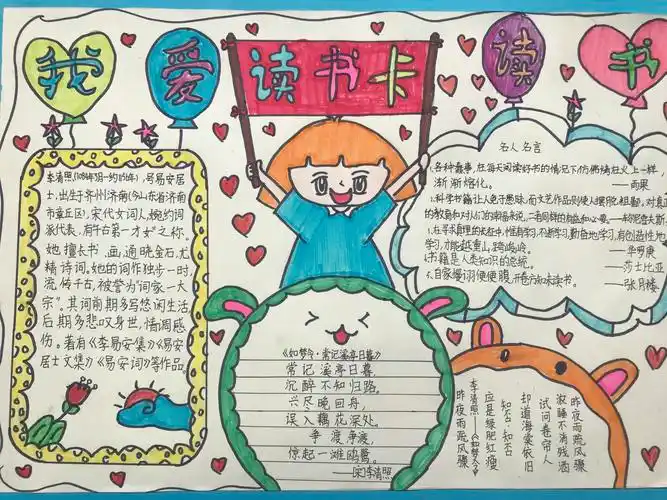 我
爱
读书卡
读
书
李清照(1084年3月—约1151年),号易安居
士,出生于齐州济南(今山东省济南
市章丘区),宋代女词人,婉约词
派代表,有"千古第一才女"之称。
她擅长书、画,通晓金石,尤
精诗词。她的词作独步一时,
流传千古,被誉为"词家一大
宗"。其词前期多写悠闲生活,
后期多悲叹身世,情调感
伤。著有《李易安集》《易安
居士文集》《易安词》等作品。
名人名言
1.各种蠢事,在每天阅读好书的情况下,仿佛烤在火上一样,
渐渐熔化。 ——雨果
2.科学书籍让人免于愚昧,而文艺作品则使人摆脱粗鄙,对真正
的教育和对人们的幸福来说,二者同样的有益和必要。
3.在寻求真理的长征中,惟有学习,不断学习,勤奋地学习,有创造性地
学习,才能越重山,跨峻岭。 ——华罗庚
4.书籍是人类知识的总统。 ——莎士比亚
5.自家漫诩便便腹,开卷方知未读书。 ——张月楼
《如梦令·常记溪亭日暮》
常记溪亭日暮,
沉醉不知归路。
兴尽晚回舟,
误入藕花深处。
争渡,争渡,
惊起一滩鸥鹭。
——[宋]李清照
昨夜雨疏风骤
浓睡不消残酒
试问卷帘人
却道海棠依旧
知否,知否
应是绿肥红瘦
李清照——《如梦令》
昨夜雨疏风骤